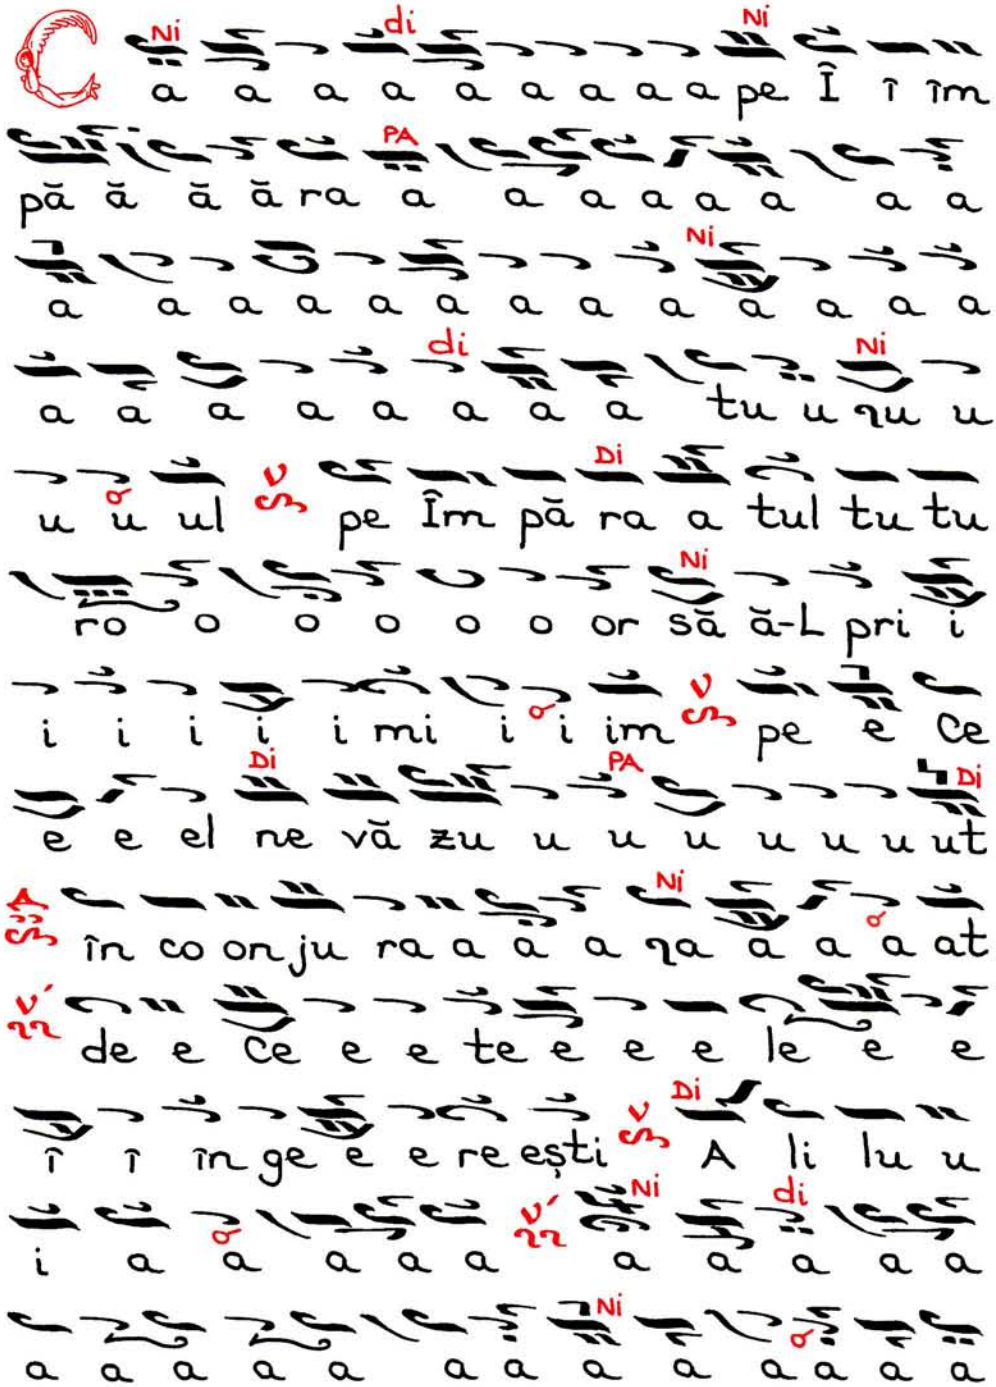 C Ni di Ni
a a a a a a a a a pe Î î îm
PA
pă ă ă ă ra a a a a a a a a
Ni
a a a a a a a a a a a a a
di Ni
a a a a a a a a tu u ƞu u
Di
u u ul pe Îm pă ra a tul tu tu
Ni
ro o o o o o or să ă-L pri i
i i i i i mi i i im pe e Ce
Di PA Di
e e el ne vă zu u u u u u u ut
Ni
în co on ju ra a a a ƞa a a a at
de e Ce e e te e e e le e e
Di
î î în ge e e re ești A li lu u
Ni di
i a a a a a a a a a a
Ni
a a a a a a a a a a a a a